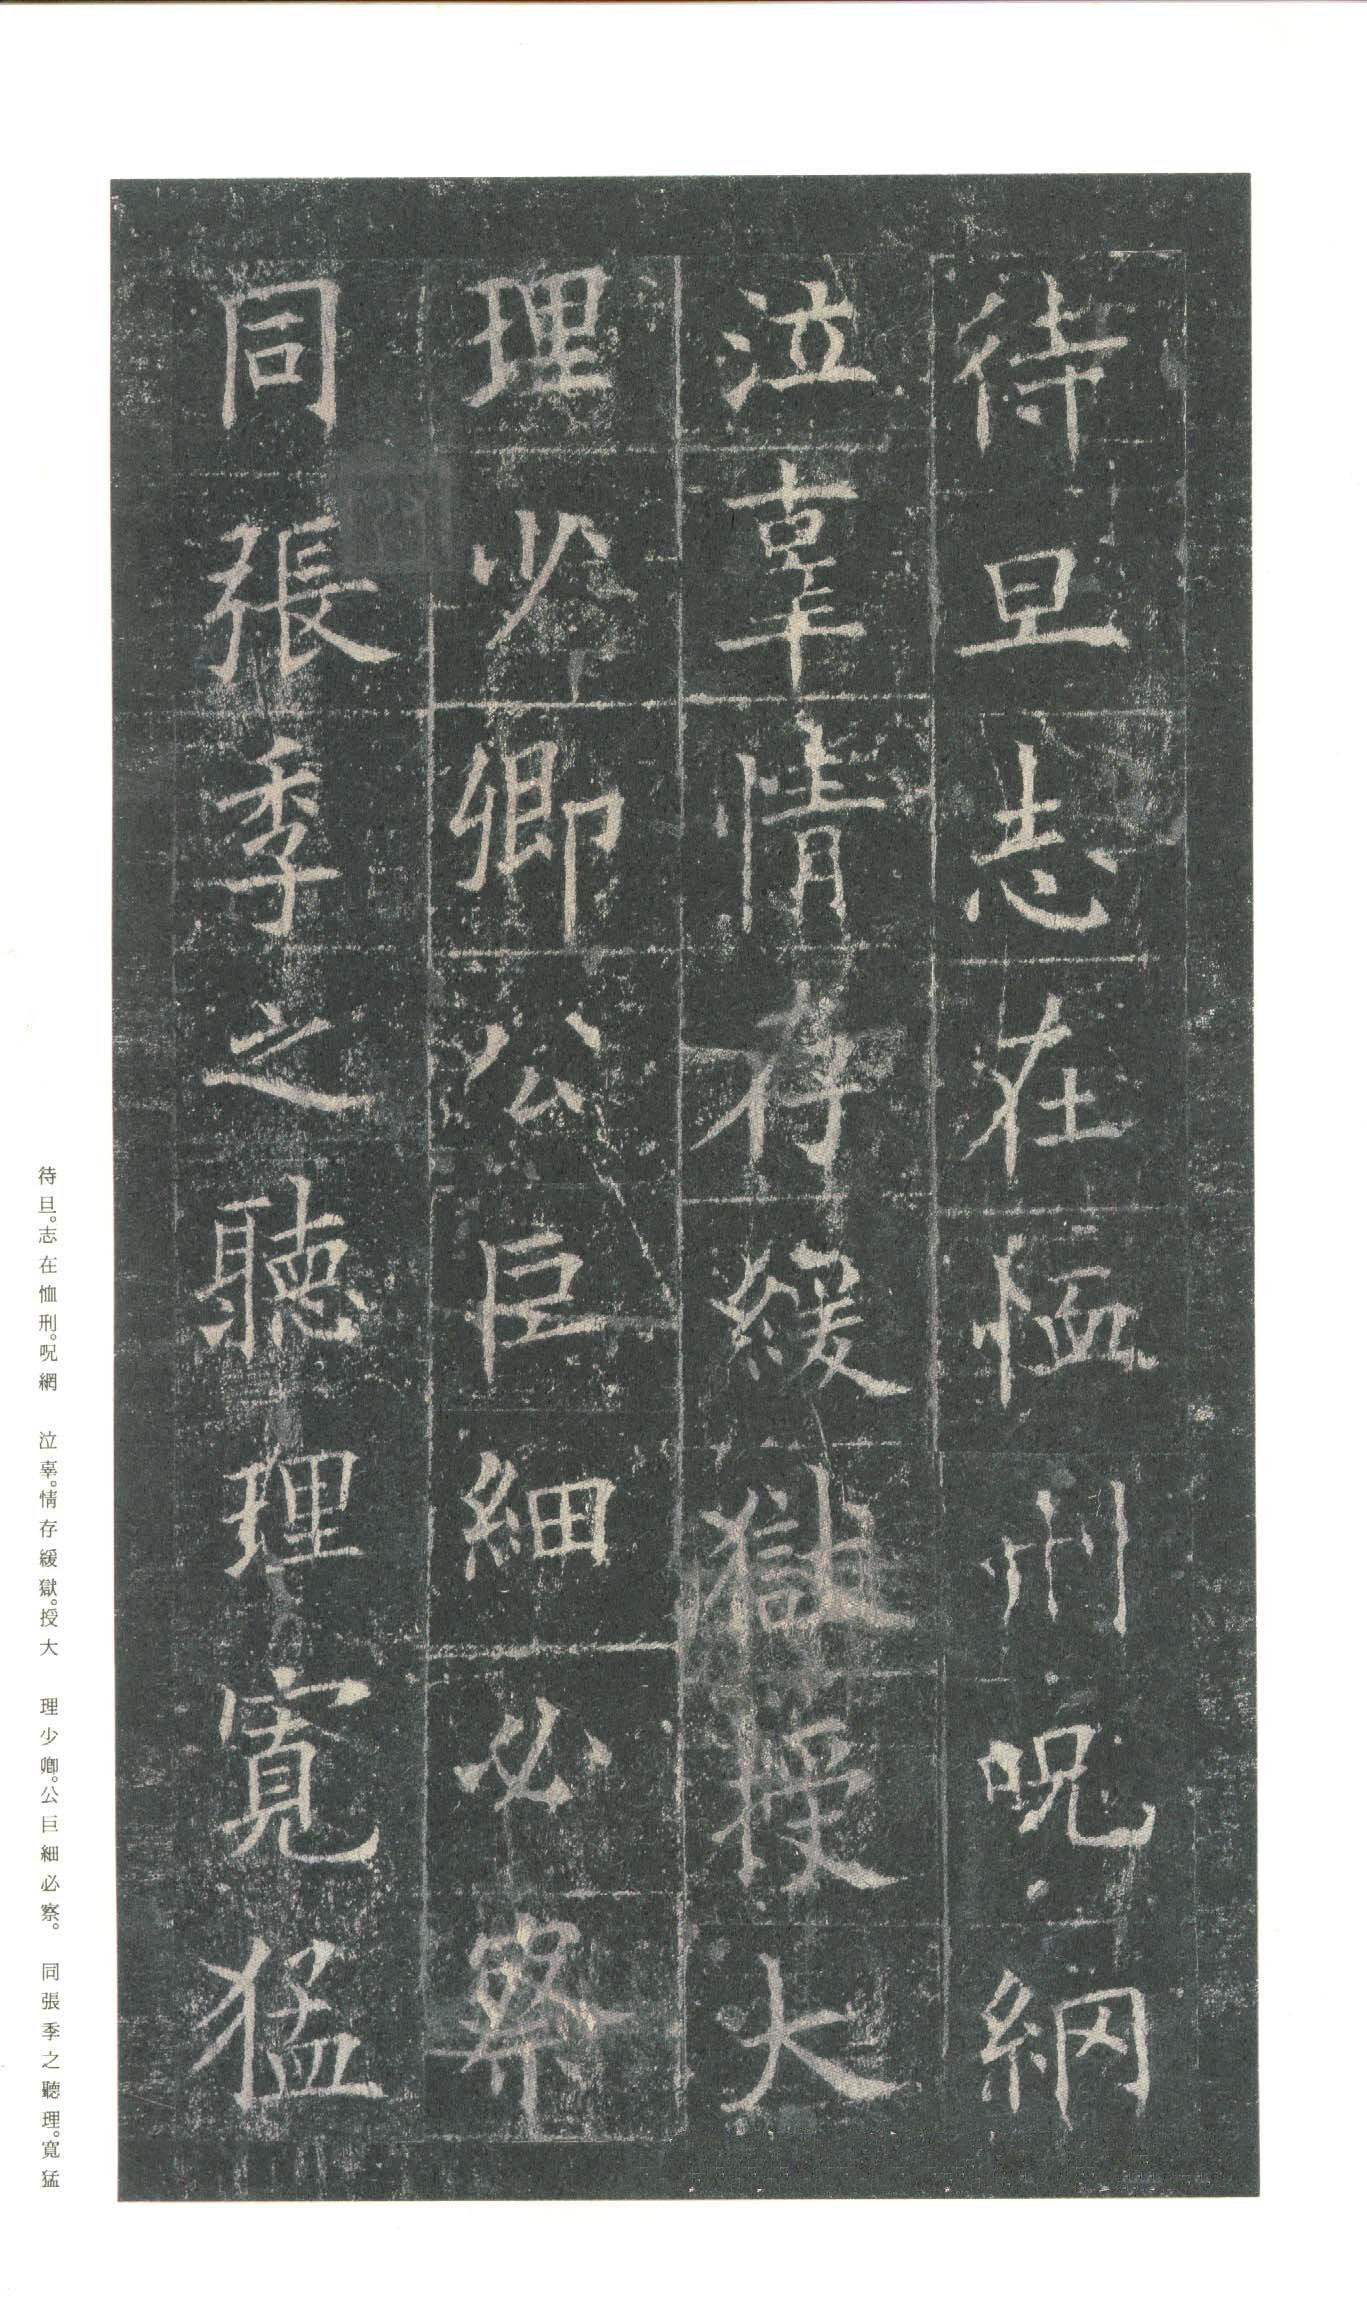 待旦志在恤刑呪網
泣辜情存緩獄授大
理少卿公巨細必察
同張季之聽理寬猛
待旦。志在恤刑。呪網　泣辜。情存緩獄。授大　理少卿。公巨細必察。　同張季之聽理。寬猛